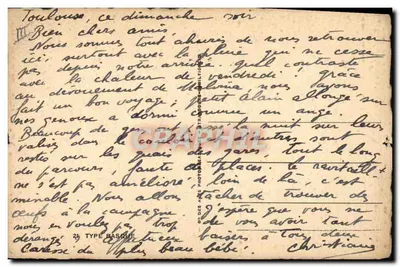 Toulouse, ce dimanche soir
III
Bien chers amis,
Nous sommes tout ahuris de nous retrouver
ici, surtout avec la pluie qui ne cesse
pas depuis notre arrivée. quel contraste
avec la chaleur de vendredi! grâce
au dévouement de nous avons
fait un bon voyage; petit Alain allongé sur
nos genoux a dormi comme un ange.
Beaucoup de la nuit sur leur
valise dans le très sont
restés sur les quais des gares, tout le long
du parcours, faute de places. Le ravitaill t
ne s'est pas amélioré, loin de là, c'est
minable. Nous allons tâcher de trouver des
œufs à la campagne J'espère que vous ne
nous en voulez pas trop de vous avoir tant
dérangés. baisers à tous deux
Caresse du plus beau bébé. Christiane
24 TYPE BASQUE
CPAPHIL